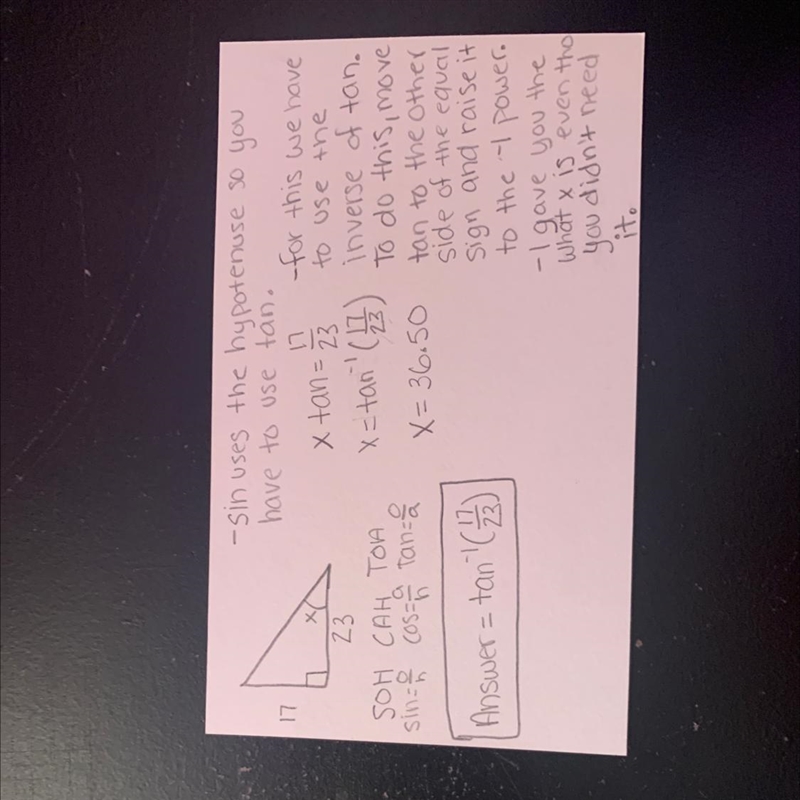 -sin uses the hypotenuse so you
have to use tan.
17
x
23
SOH CAH TOA
sin=o/h cos=a/h Tan=o/a
Answer = tan⁻¹(17/23)
x tan = 17/23
x = tan⁻¹(17/23)
x = 36.50
-for this we have
to use the
inverse of tan.
To do this, move
tan to the other
side of the equal
sign and raise it
to the -1 power.
-I gave you the
what x is even tho
you didn't need
it.